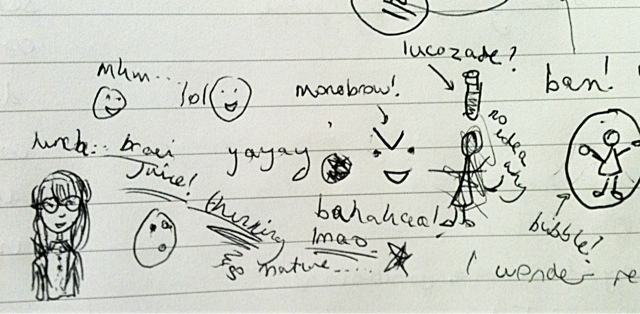 lucozade?
mhm...
lol
monobrow!
ban!
no idea why
yayay
juice!
thinking
bahahaa!
lmao
so mature.....
bubble?
I wonder